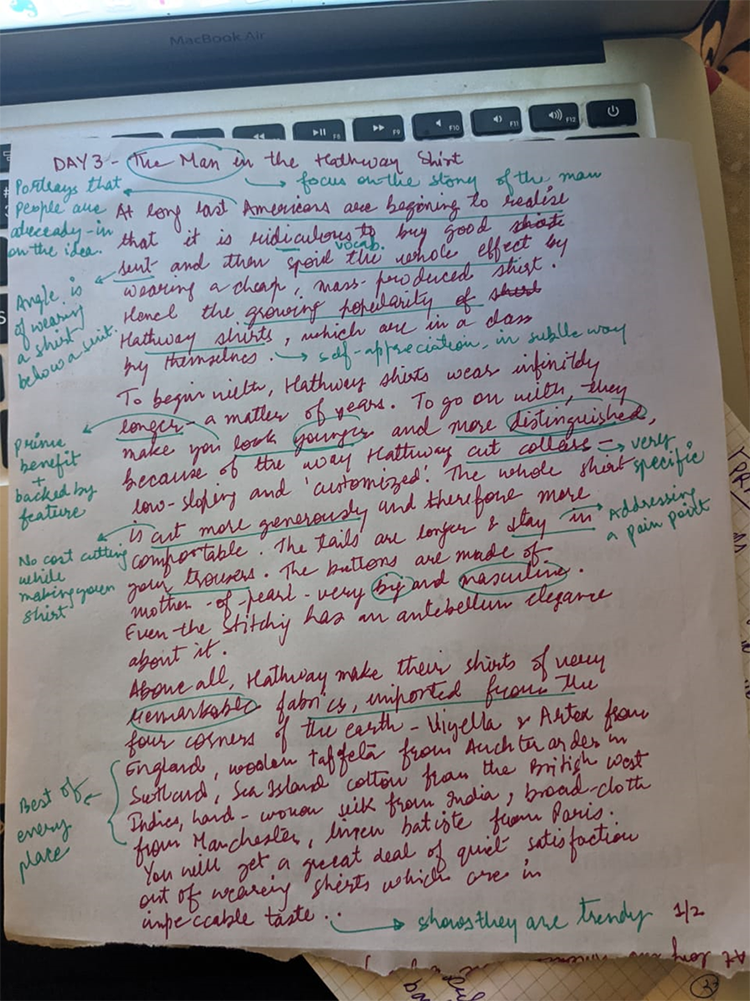 MacBook Air
F8
F9
F10
F11
F12
DAY 3 - The Man in the Hathway Shirt
→ focus on the story of the man
Portrays that
People are
already-in
on the idea.
At long last Americans are begining to realise
that it is ridiculous to buy good
vocab.
suit and then spoid the whole effect by
wearing a cheap, mass-produced shirt.
Hence the growing popularity of shirt
Hathway shirts, which are in a class
by themselves.
→ self-appreciation, in subtle way
Angle is
of wearing
a shirt
below a suit.
To begin with, Hathway shirts wear infinitely
longer - a matter of years. To go on with, they
make you look younger and more distinguished,
because of the way Hathway cut collars -
→ very
specific
low-sloping and 'customized'. The whole shirt
is cut more generously and therefore more
comfortable. The tails are longer & stay in
→ Addressing
a pain point
your trousers. The buttons are made of
mother-of pearl - very big and masculine.
Even the stitchig has an antebellum elegance
about it.
Prime
benefit
+
backed by
feature
No cost cutting
while
making your
shirt
Above all, Hathway make their shirts of very
remarkable fabrics, imported from the
four corners of the earth - Viyella & Artex from
England, woolen taffeta from Auchterarder in
Sea Island cotton from the British West
Indies, hand-woven silk from India, broad-cloth
from Manchester, linen batiste from Paris.
You will get a great deal of quiet satisfaction
out of wearing shirts which are in
impeccable taste..
→ shows they are trendy
1/2
Best of
every
place